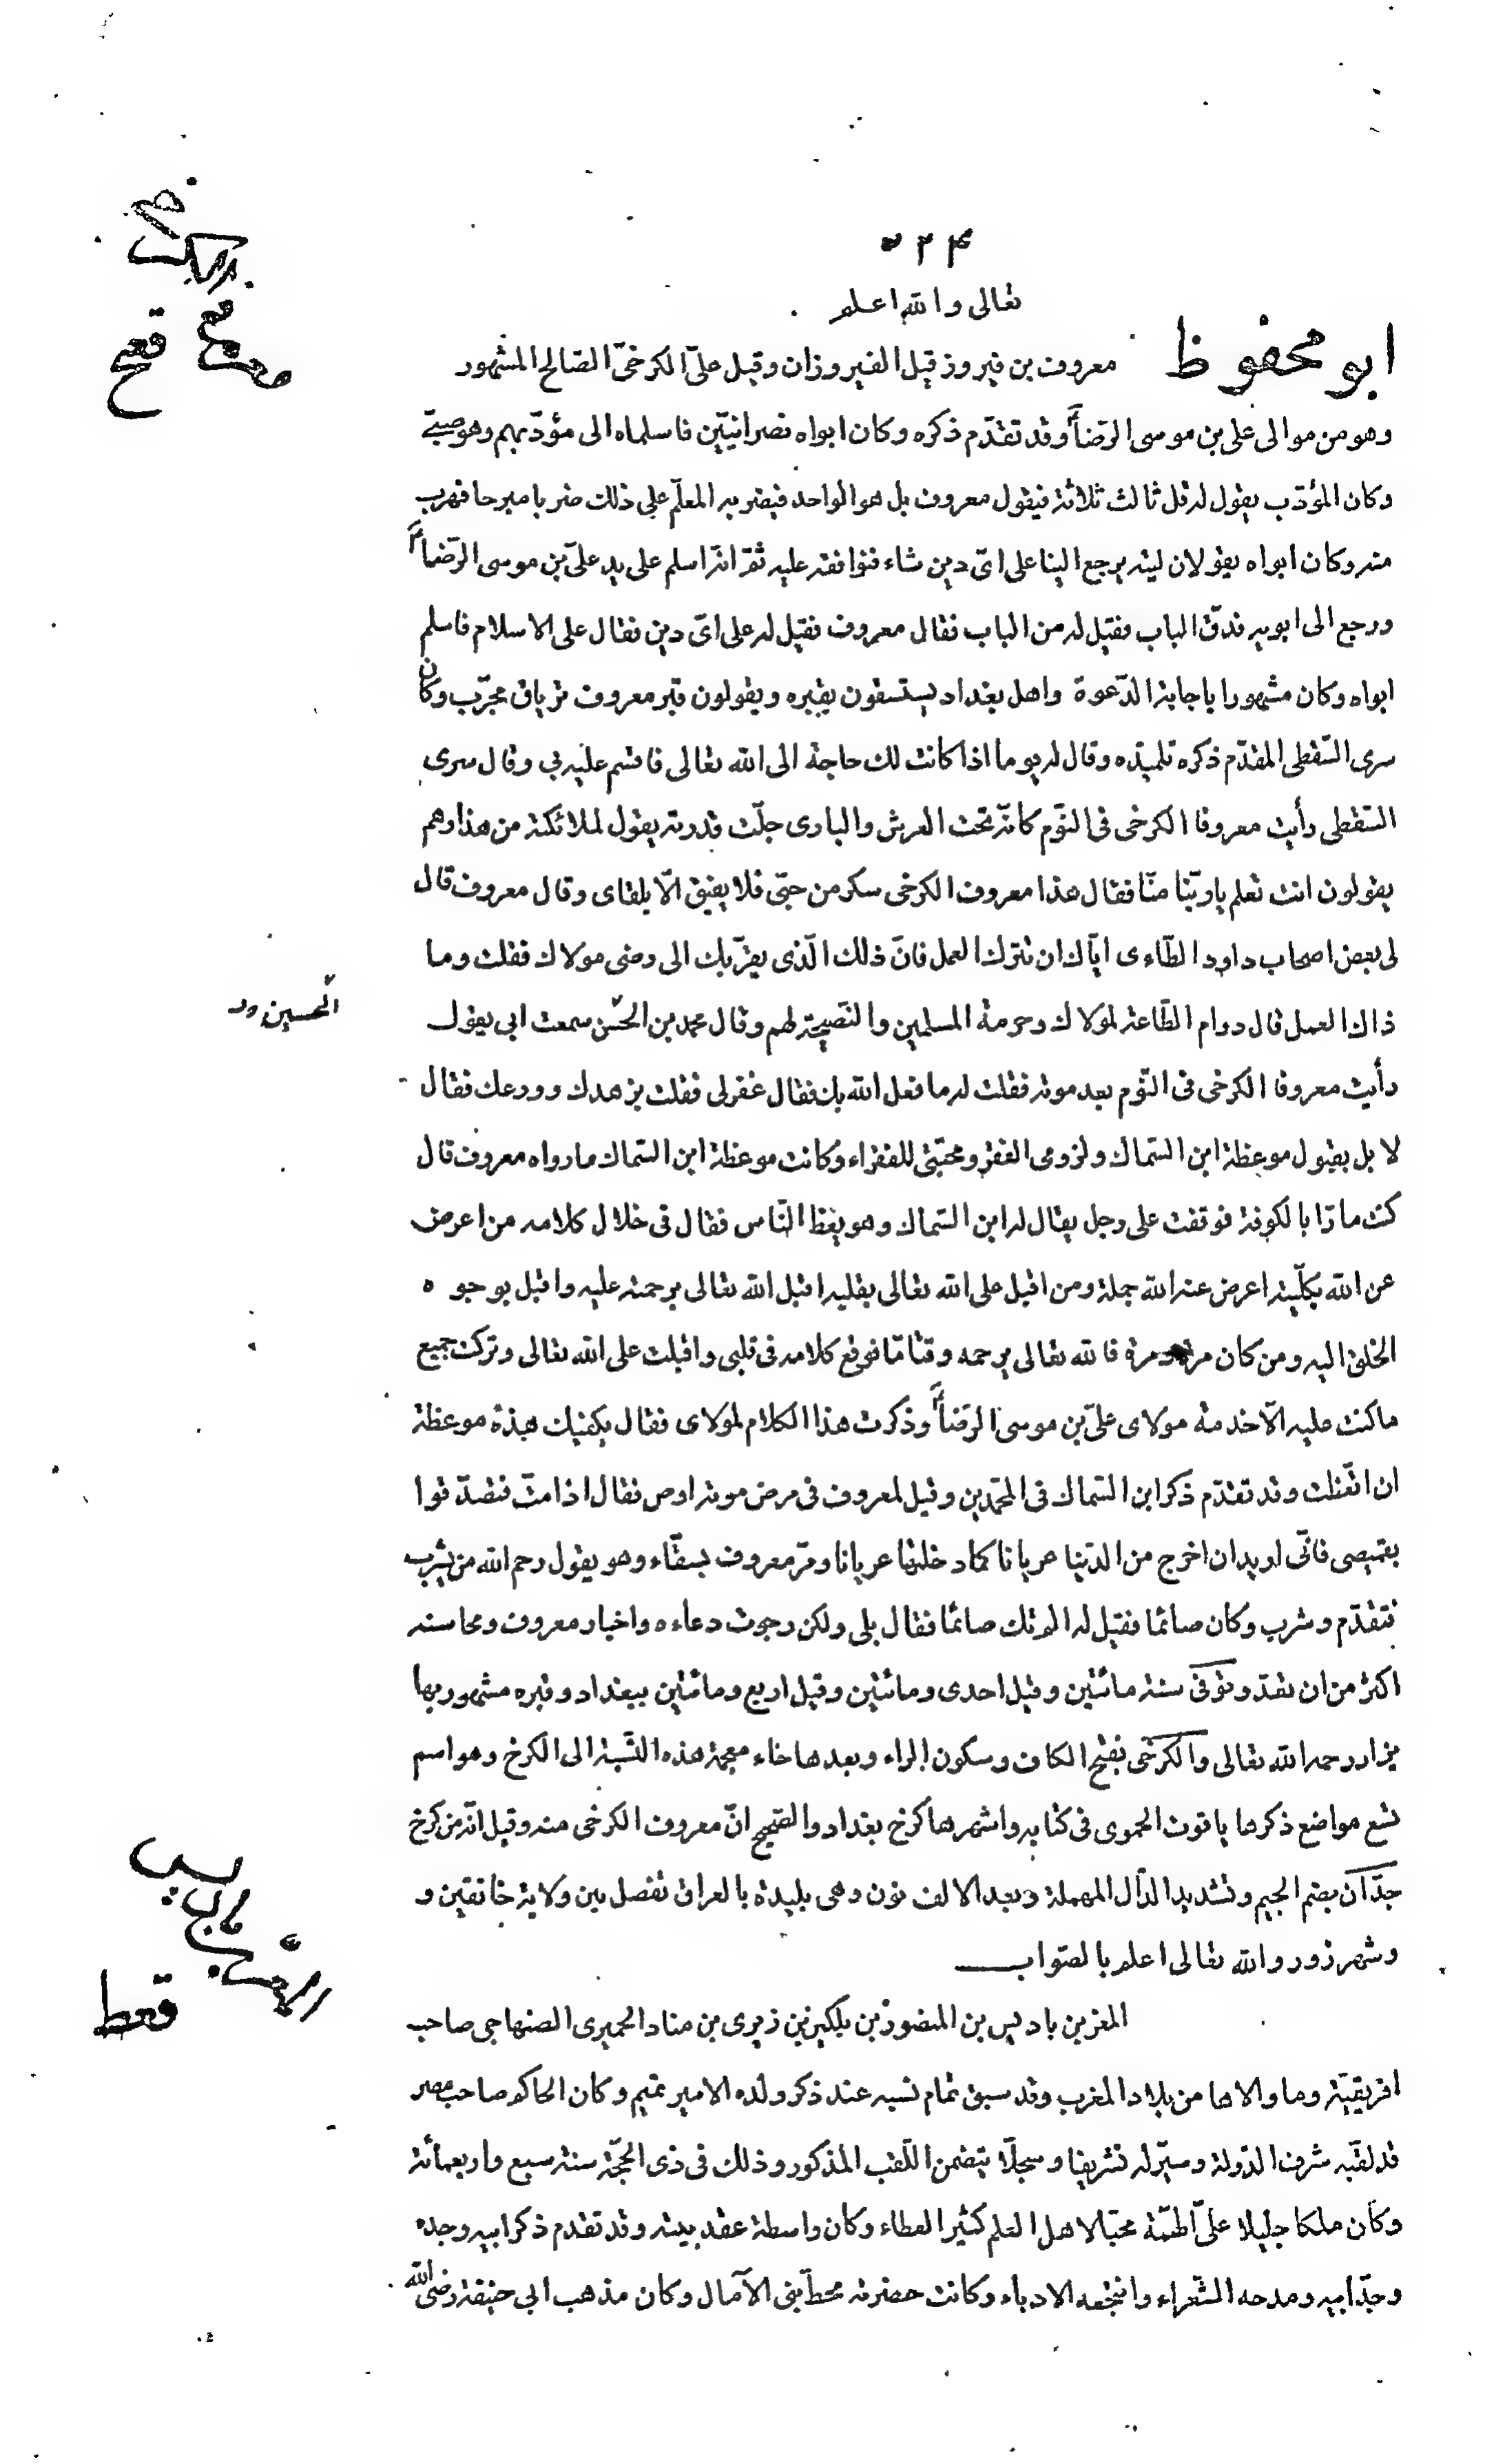 ٢٢٤
تعالى والله اعلم
ابو محفوظ معروف بن فيروز قيل الفيروزان وقيل علىّ الكرخىّ الصّالح المشهور
وهو من موالى على بن موسى الرّضا وقد تقدّم ذكره وكان ابواه نصرانيّين فاسلماه الى مؤدّبهم وهو صبىّ
وكان المؤدّب يقول له قل ثالث ثلاثة فيقول معروف بل هو الواحد فيضربه المعلّم على ذلك ضربا مبرحا فهرب
منه وكان ابواه يقولان ليته يرجع الينا على اىّ دين شاء فنوافقه عليه ثمّ انّه اسلم على يد علىّ بن موسى الرّضا
ورجع الى ابويه فدقّ الباب فقيل له من الباب فقال معروف فقيل له على اىّ دين فقال على الاسلام فاسلم
ابواه وكان مشهورا باجابة الدّعوة واهل بغداد يستسقون بقبره ويقولون قبر معروف ترياق مجرّب وكان
سرى السّقطى المقدّم ذكره تلميذه وقال له يوما اذا كانت لك حاجة الى الله تعالى فاقسم عليه بى وقال سرى
السّقطى رأيت معروفا الكرخى فى النّوم كانّه تحت العرش والبارى جلّت قدرته يقول لملائكته من هذا وهم
يقولون انت تعلم ياربّنا منّا فقال هذا معروف الكرخى سكر من حبّى فلا يفيق الّا بلقاى وقال معروف قال
لى بعض اصحاب داود الطّاءى ايّاك ان تترك العمل فانّ ذلك الّذى يقرّبك الى رضى مولاك فقلت وما
ذاك العمل قال دوام الطّاعة لمولاك وحرمة المسلمين والنّصيحة لهم وقال محمد بن الحسن سمعت ابى يقول
الحسين
رأيت معروفا الكرخى فى النّوم بعد موته فقلت له ما فعل الله بك فقال غفر لى فقلت بزهدك وورعك فقال
لا بل بقبول موعظة ابن السّماك ولزومى الفقر ومحبّتى للفقراء وكانت موعظة ابن السّماك ما رواه معروف قال
كنت مارّا بالكوفة فوقفت على رجل يقال له ابن السّماك وهو يعظ النّاس فقال فى خلال كلامه من اعرض
عن الله بكلّيته اعرض عنه الله جملة ومن اقبل على الله تعالى بقلبه اقبل الله تعالى برحمته عليه واقبل بوجوه
الخلق اليه ومن كان مرة ومرة فالله تعالى يرحمه وقتا ما فوقع كلامه فى قلبى واقبلت على الله تعالى وتركت جميع
ما كنت عليه الّا خدمة مولاى علىّ بن موسى الرّضا وذكرت هذا الكلام لمولاى فقال يكفيك بهذه موعظة
ان اتّعظت وقد تقدّم ذكر ابن السّماك فى المحمّدين وقيل لمعروف فى مرض موته اوص فقال اذا متّ فتصدّقوا
بقميصى فانّى اريد ان اخرج من الدّنيا عريانا كما دخلتها عريانا ومرّ معروف بسقّاء وهو يقول رحم الله من يشرب
فتقدّم وشرب وكان صائما فقيل له الم تك صائما فقال بلى ولكن رجوت دعاءه واخبار معروف ومحاسنه
اكثر من ان تعدّ وتوفّى سنة مائتين وقيل احدى ومائتين وقيل اربع ومائتين ببغداد وقبره مشهور بها
يزار رحمه الله تعالى والكرخى بفتح الكاف وسكون الراء وبعدها خاء معجمة هذه النّسبة الى الكرخ وهو اسم
تسع مواضع ذكرها ياقوت الحموى فى كتابه واشهرها كرخ بغداد والصّحيح انّ معروف الكرخى منه وقيل انّه من كرخ
جدّان بضم الجيم وتشديد الدّال المهملة وبعد الالف نون وهى بليدة بالعراق تفصل بين ولاية خانقين و
وشهرزور والله تعالى اعلم بالصّواب
المعز بن باديس بن المنصور بن بلكين بن زيرى بن مناد الحميرى الصنهاجى صاحب
افريقيّة وما والاها من بلاد المغرب وقد سبق تمام نسبه عند ذكر ولده الامير تميم وكان الحاكم صاحب مصر
قد لقّبه شرف الدّولة وسيّر له تشريفا وسجلّا يتضمن اللّقب المذكور وذلك فى ذى الحجّة سنة سبع واربعمائة
وكان ملكا جليلا علىّ الهمّة محبّا لاهل العلم كثير العطاء وكان واسطة عقد بيته وقد تقدم ذكر ابيه وجده
وجدّ ابيه ومدحه الشّعراء وانتجعه الادباء وكانت حضرته محطّ بنى الآمال وكان مذهب ابى حنيفة رضى الله